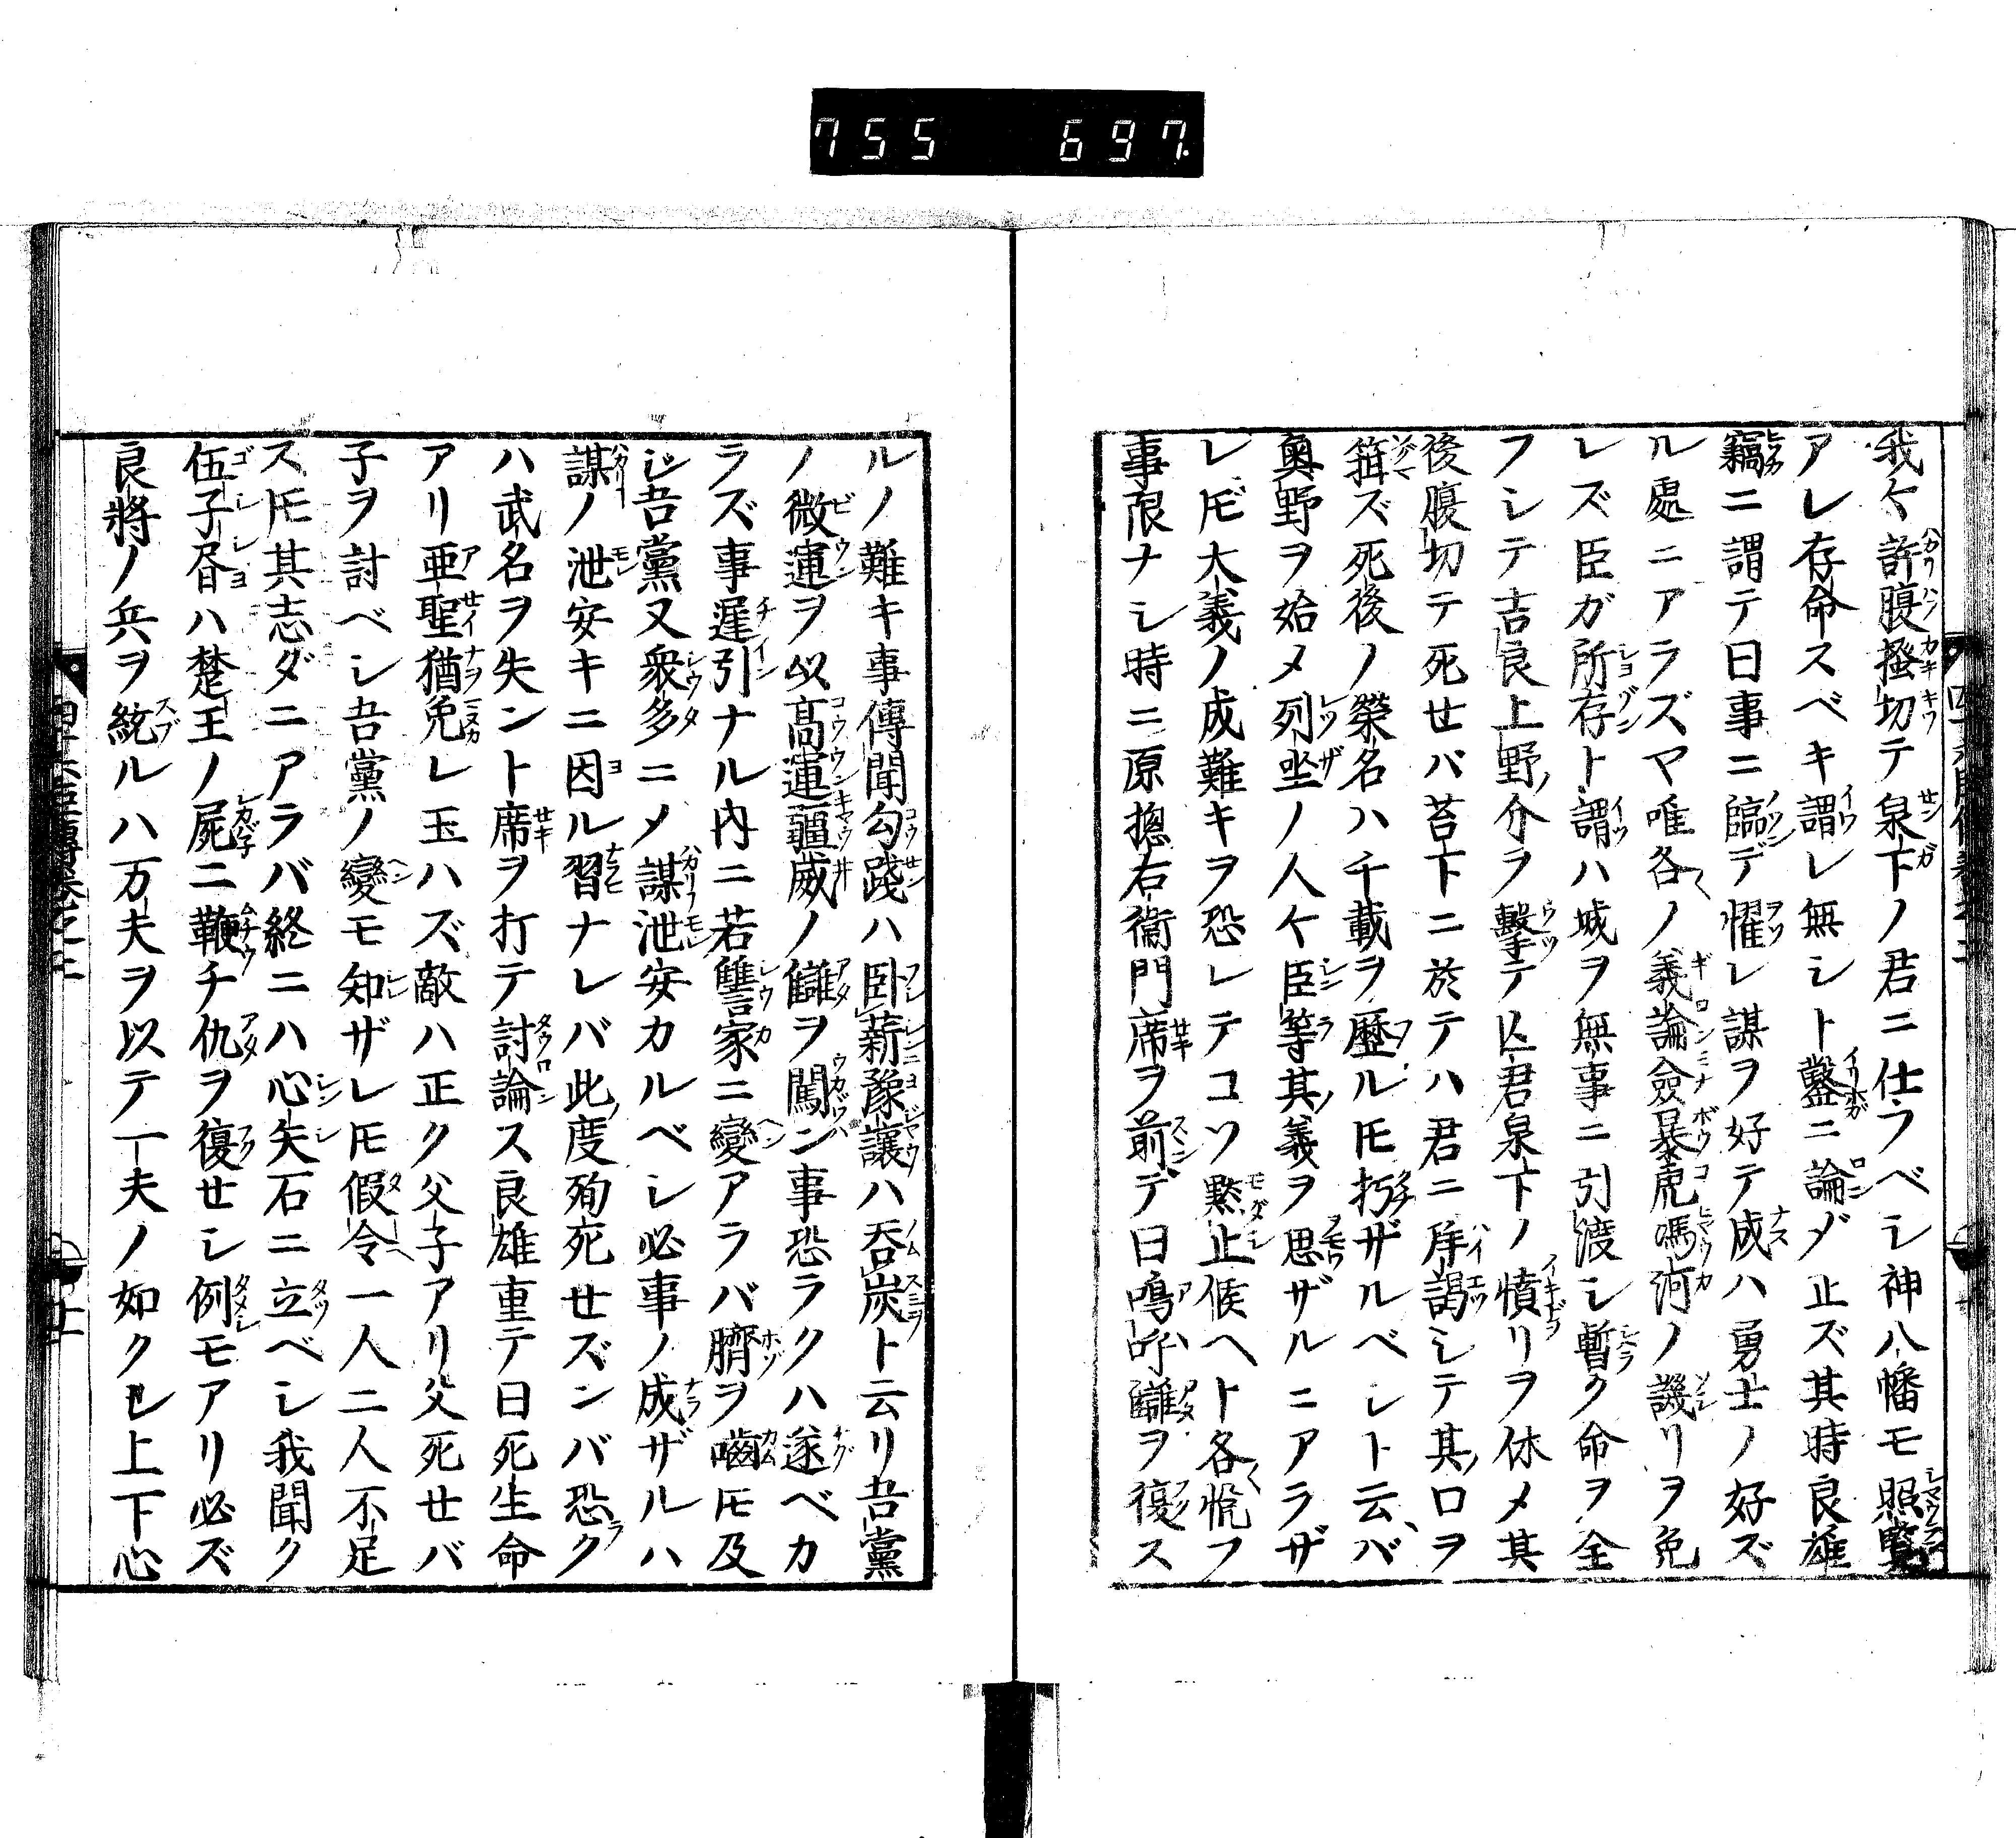 755 697
我ケ許腹搔切テ泉下ノ君ニ仕ヲベシ神八幡モ照覧
アレ存命スベキ謂レ無シト鑿ニ論ヅ止ズ其時良雄
竊ニ謂テ曰事ニ臨デ懼レ謀ヲ好テ成ハ勇士ノ好ズ
ル處ニアラズマ唯各〱ノ義論僉暴虎馮河ノ譏リヲ免
レズ臣ガ所存ト謂ハ城ヲ無事ニ引渡シ暫ク命ヲ全
フシテ吉良上野ノ介ヲ擊テ亡君泉下ノ憤リヲ休メ其
後腹切テ死せバ苔下ニ於テハ君ニ拝謁シテ其ノ口ヲ
箝ズ死後ノ榮名ハ千載ヲ歷ルモ朽ザルベシト云バ
奥野ヲ始メ列坐ノ人ケ臣等其ノ義ヲ思ザルニアラザ
レ𪜈大義ノ成難キヲ恐レテコソ黙止候ヘト各〱悦フ
事限ナシ時ニ原摠右衞門席ヲ前デ曰嗚呼讎ヲ復ス
ルノ難キ事傳聞勾踐ハ臥薪豫讓ハ呑炭ト云リ吾黨
ノ微運ヲ以髙運疆威ノ讎ヲ闖ン事恐ラクハ遂ベカ
ラズ事遲引ナル内ニ若讐家ニ變アラバ臍ヲ嚙𪜈及
ジ吾黨又衆多ニメ謀泄安カルベシ必事ノ成ザルハ
謀ノ泄安キニ因ル習ナレバ此ノ度殉死せズンバ恐ラク
ハ武名ヲ失ント席ヲ打テ討論ス良雄重テ曰死生命
アリ亜聖猶免レ玉ハズ敵ハ正ク父子アリ父死せバ
子ヲ討ベシ吾黨ノ變モ知ザレ𪜈假令一人二人不足
ス𪜈其志ダニアラバ終ニハ心矢石ニ立ベシ我聞ク
伍子胥ハ楚王ノ屍ニ鞭チ仇ヲ復せシ例モアリ必ズ
良將ノ兵ヲ統ルハ万夫ヲ以テ一夫ノ如クシ上下心